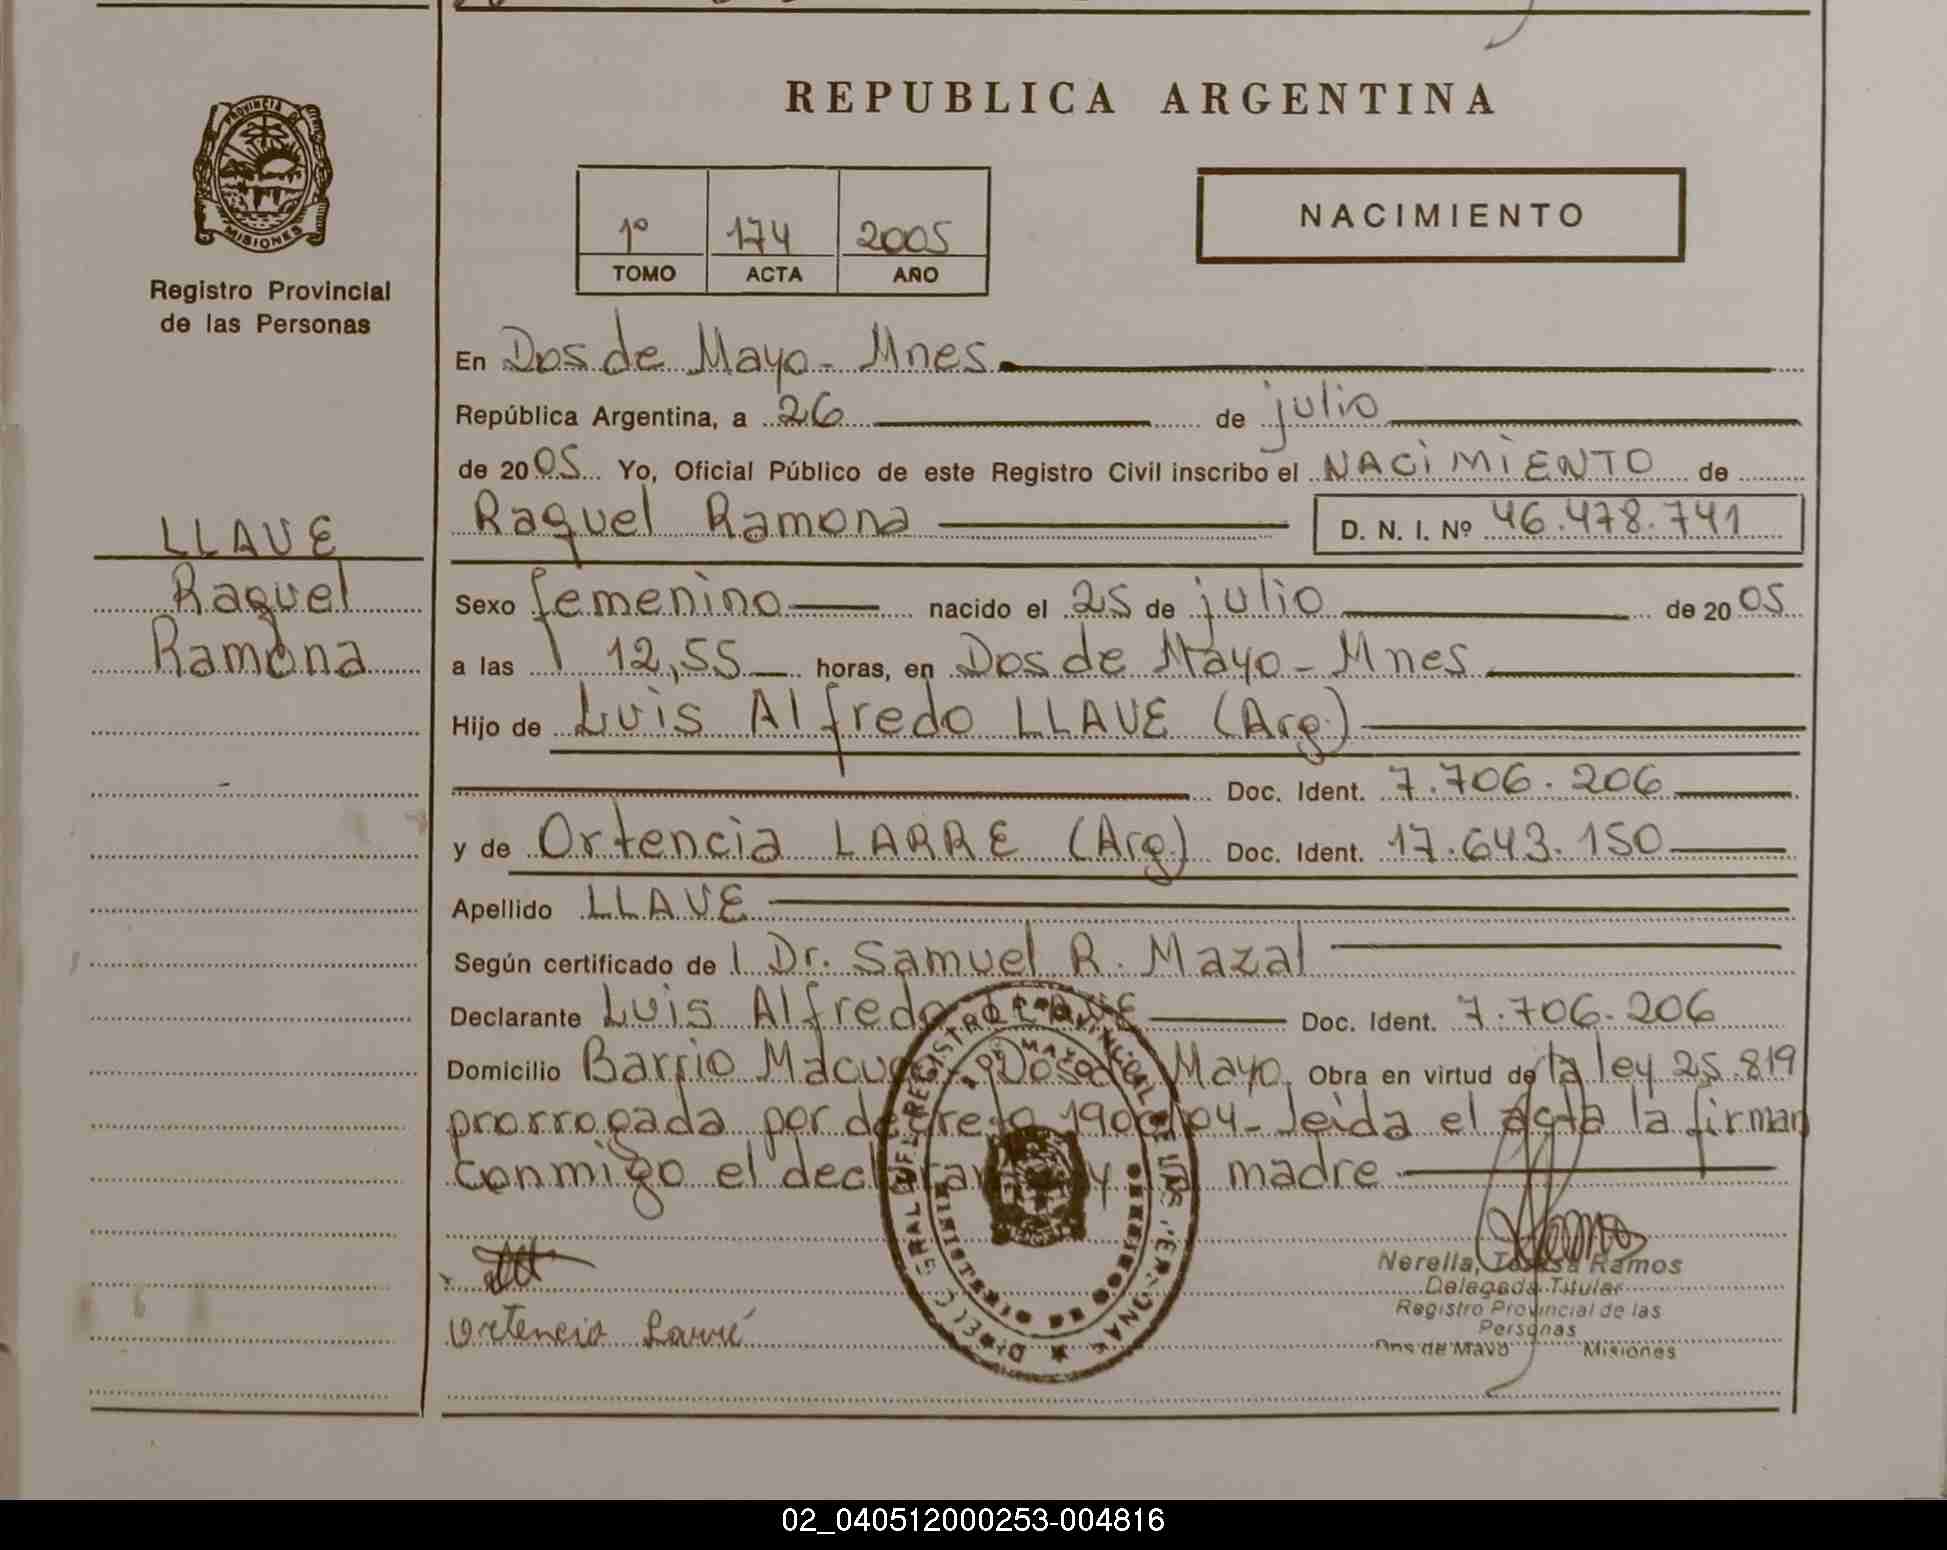 REPUBLICA ARGENTINA
PROVINCIA DE
MISIONES
Registro Provincial
de las Personas
1º 174 2005
TOMO ACTA AÑO
NACIMIENTO
LLAVE
Raquel
Ramona
En Dos de Mayo - Mnes
República Argentina, a 26 de julio
de 2005 Yo, Oficial Público de este Registro Civil inscribo el NACIMIENTO de
Raquel Ramona D. N. I. Nº 46.478.741
Sexo femenino nacido el 25 de julio de 2005
a las 12,55 horas, en Dos de Mayo - Mnes
Hijo de Luis Alfredo LLAVE (Arg.)
Doc. Ident. 7.706.206
y de Ortencia LARRE (Arg.) Doc. Ident. 17.643.150
Apellido LLAVE
Según certificado de l Dr. Samuel R. Mazal
Declarante Luis Alfredo LLAVE Doc. Ident. 7.706.206
Domicilio Barrio - Dos de Mayo. Obra en virtud de la ley 25.819
prorrogada por decreto 190 /04 - leida el acta la firman
conmigo el declarante y la madre
Ortencia Larré
Nerella, Teresa Ramos
Delegada Titular
Registro Provincial de las
Personas
Dos de Mayo Misiones
02_040512000253-004816